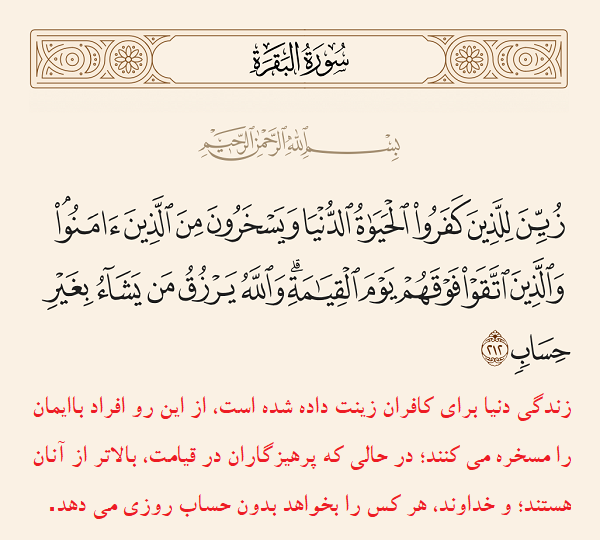 سُورَةُ البَقَرَةِ
بِسْمِ ٱللَّهِ ٱلرَّحْمَٰنِ ٱلرَّحِيمِ
زُيِّنَ لِلَّذِينَ كَفَرُوا۟ ٱلْحَيَوٰةُ ٱلدُّنْيَا وَيَسْخَرُونَ مِنَ ٱلَّذِينَ ءَامَنُوا۟ۘ
وَٱلَّذِينَ ٱتَّقَوْا۟ فَوْقَهُمْ يَوْمَ ٱلْقِيَٰمَةِۗ وَٱللَّهُ يَرْزُقُ مَن يَشَآءُ بِغَيْرِ
حِسَابٍ ٢١٢
زندگی دنیا برای کافران زینت داده شده است، از این رو افراد باایمان
را مسخره می کنند؛ در حالی که پرهیزگاران در قیامت، بالاتر از آنان
هستند؛ و خداوند، هر کس را بخواهد بدون حساب روزی می دهد.